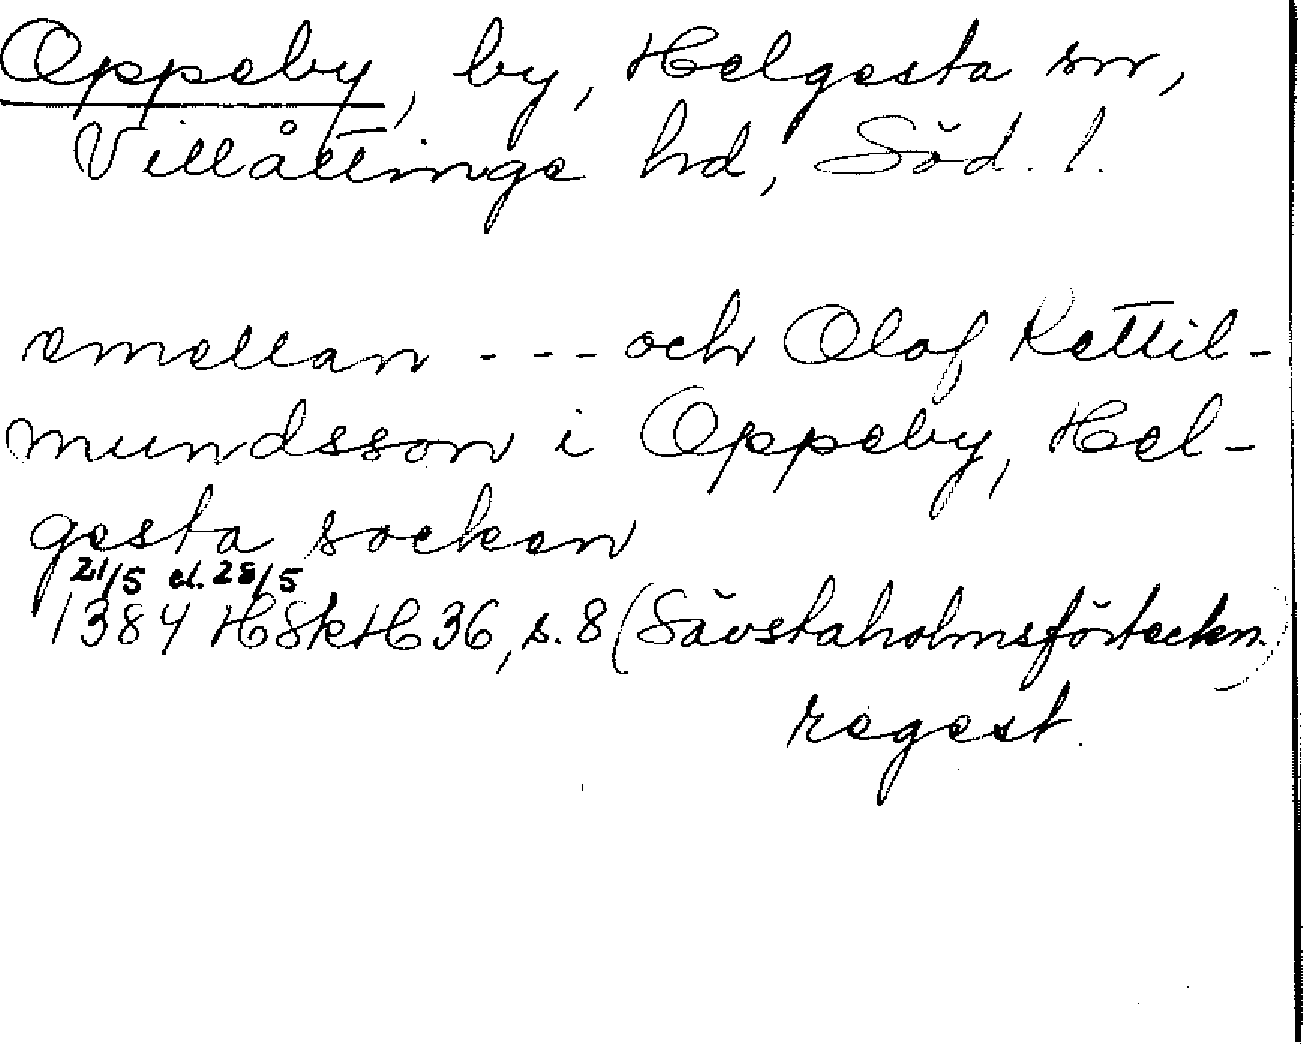 Oppeby, by, Helgesta sn,
Villåttinge hd, Söd. l.
emellan - - - och Olof Kettil-
mundsson i Oppeby, Hel-
gesta socken
21/5 el. 28/5
1384 HSkH 36, s. 8 (Sävstaholmsförteckn.)
regest.